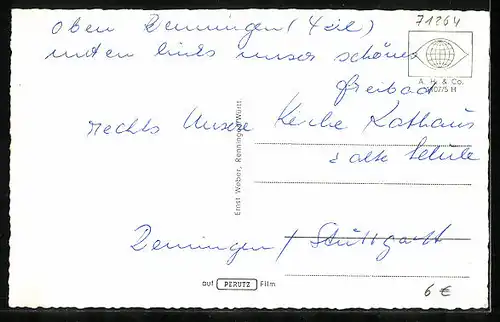 oben Renningen (Teil)
71264
unten links unser schönes
Freibad
A. H. & Co.
rechts Unsere Kirche Rathaus
& alte Schule
Ernst Weber, Renningen/Württ.
Renningen / Stuttgart
auf PERUTZ Film
6 €